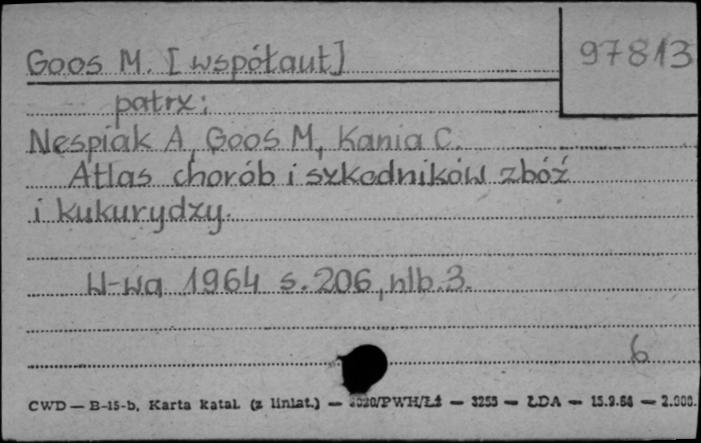 Goos M. [współaut]
97813
patrz:
Nespiak A, Goos M, Kania C.
Atlas chorób i szkodników zbóż
i kukurydzy.
W-wa 1964 s. 206, nlb. 3.
6
CWD — B-15-b, Karta katal. (z liniat.) — /PWH/Łź — 3253 — ŁDA — 15.9.64 — 2.000.